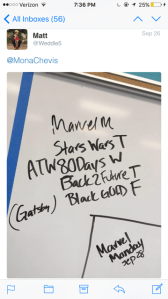 Verizon
7:38 PM
25%
All Inboxes (56)
Matt
@WeddleS
Sep 28
@MonaChevis
Marvel M
Stars Wars T
ATW80Days W
Back2Future T
(Gatsby) Black GOLD F
Marvel
Monday
Sep 28